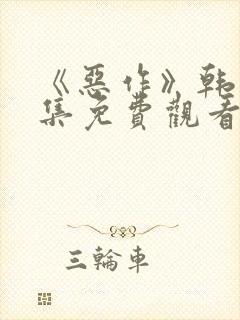 《惡作》韩
集免費觀看
三輪車